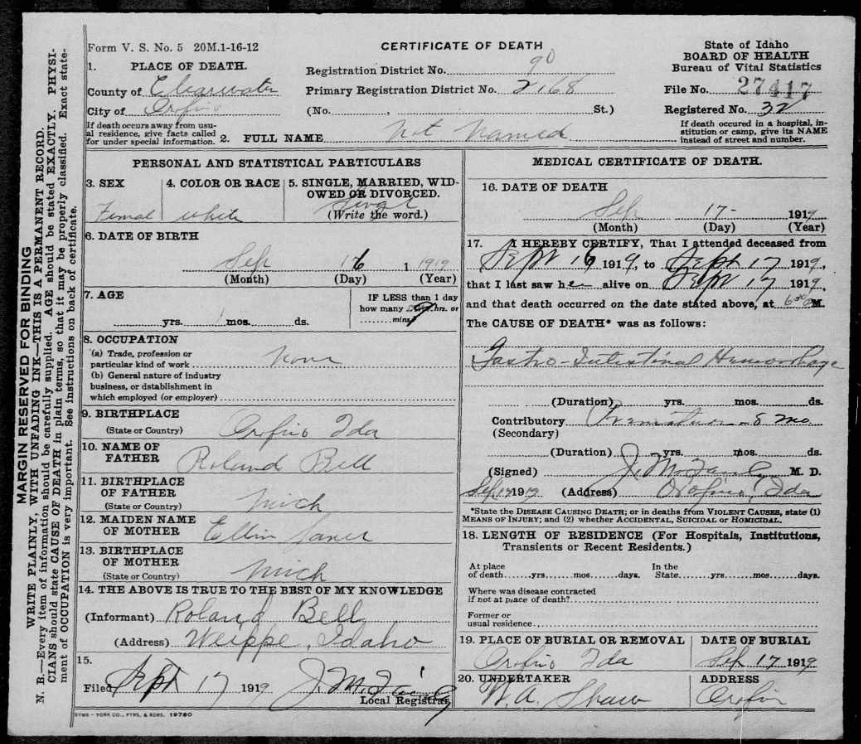 Form V. S. No. 5 20M.1-16-12
CERTIFICATE OF DEATH
State of Idaho
BOARD OF HEALTH
Bureau of Vital Statistics
1. PLACE OF DEATH.
Registration District No. 90
County of Clearwater
Primary Registration District No. 2168
File No. 27417
City of Orofino
(No. , St.)
Registered No. 32
If death occurs away from usual residence, give facts called for under special information.
2. FULL NAME Not Named
If death occurred in a hospital, institution or camp, give its NAME instead of street and number.
PERSONAL AND STATISTICAL PARTICULARS
3. SEX
Femal
4. COLOR OR RACE
white
5. SINGLE, MARRIED, WIDOWED OR DIVORCED.
(Write the word.)
6. DATE OF BIRTH
Sep 16 1 1919
(Month) (Day) (Year)
7. AGE
yrs. mos. ds.
IF LESS than 1 day
how many hrs. or
mins?
8. OCCUPATION
(a) Trade, profession or
particular kind of work None
(b) General nature of industry
business, or dstablishment in
which employed (or employer)
9. BIRTHPLACE
(State or Country) Orofino Ida
10. NAME OF
FATHER Roland Bell
11. BIRTHPLACE
OF FATHER
(State or Country) Mich
12. MAIDEN NAME
OF MOTHER
13. BIRTHPLACE
OF MOTHER
(State or Country) Mich
14. THE ABOVE IS TRUE TO THE BEST OF MY KNOWLEDGE
(Informant) Roland Bell
(Address) Weippe, Idaho
15.
Filed Sept 17 1919
Local Registrar
MEDICAL CERTIFICATE OF DEATH.
16. DATE OF DEATH
Sep 17 1919
(Month) (Day) (Year)
17. I HEREBY CERTIFY, That I attended deceased from
Sept 16 1919, to Sept 17 1919,
that I last saw her alive on Sept 17 1919,
and that death occurred on the date stated above, at M.
The CAUSE OF DEATH* was as follows:
Gastro-Intestinal Hemorrhage
(Duration) yrs. mos. ds.
Contributory 8 mo
(Secondary)
(Duration) yrs. mos. ds.
(Signed) M. D.
1919 (Address) Orofino, Ida
*State the DISEASE CAUSING DEATH; or in deaths from VIOLENT CAUSES, state (1)
MEANS OF INJURY; and (2) whether ACCIDENTAL, SUICIDAL or HOMICIDAL.
18. LENGTH OF RESIDENCE (For Hospitals, Institutions,
Transients or Recent Residents.)
At place
of death yrs. mos. days.
In the
State yrs. mos. days.
Where was disease contracted
if not at place of death?
Former or
usual residence
19. PLACE OF BURIAL OR REMOVAL
Orofino Ida
DATE OF BURIAL
Sep 17 1919
20. UNDERTAKER
W. A. Shaw
ADDRESS
Orofin
SYMS - YORK CO., PTRS. & BDRS. 19760
MARGIN RESERVED FOR BINDING
WRITE PLAINLY, WITH UNFADING INK—THIS IS A PERMANENT RECORD.
N. B.—Every item of information should be carefully supplied. AGE should be stated EXACTLY. PHYSI-
CIANS should state CAUSE OF DEATH in plain terms, so that it may be properly classified. Exact state-
ment of OCCUPATION is very important. See instructions on back of certificate.